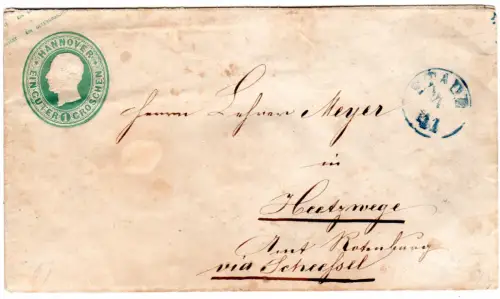 HANNOVER
EIN GUTER 1 GROSCHEN
STADE
Herrn Lehrer Meyer
in
Hetzwege
Amt Rotenburg
via Scheessel